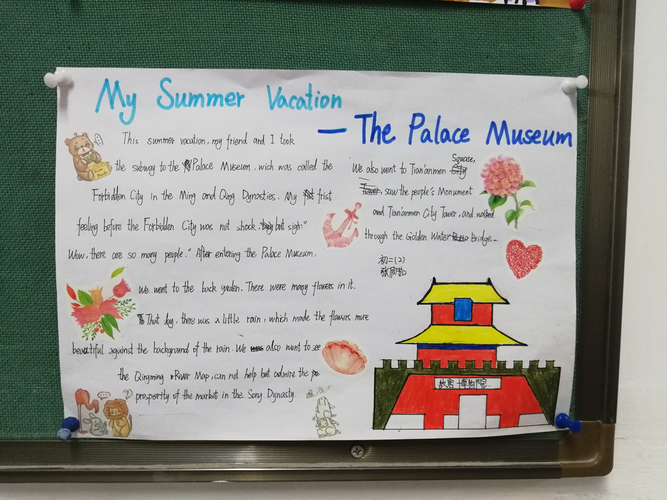 My Summer Vacation
— The Palace Museum
This summer vacation, my friend and I took
the subway to the Palace Museum, wich was called the
Forbidden City in the Ming and Qing Dynasties. My frist
feeling before the Forbidden City was not shock, but sigh:"
Wow, there are so many people." After entering the Palace Museum.
We went to the back garden. There were many flowers in it.
That day, there was a little rain, which made the flowers more
beautiful against the background of the rain. We also went to see
the Qingming River Map, can not help but admire the pro
prosperity of the market in the Song Dynasty.
We also went to Tian'anmen Square,
saw the people's Monument
and Tian'anmen City Tower, and walked
through the Golden Water Bridge.
初二(2)
故宫博物院